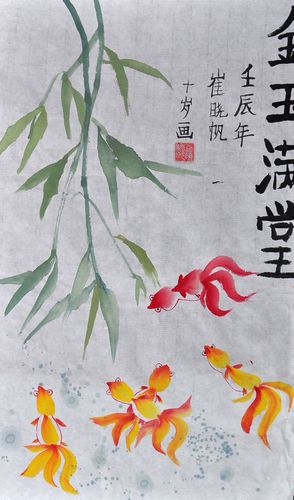 金玉满堂
壬辰年
崔晓帆
十岁画